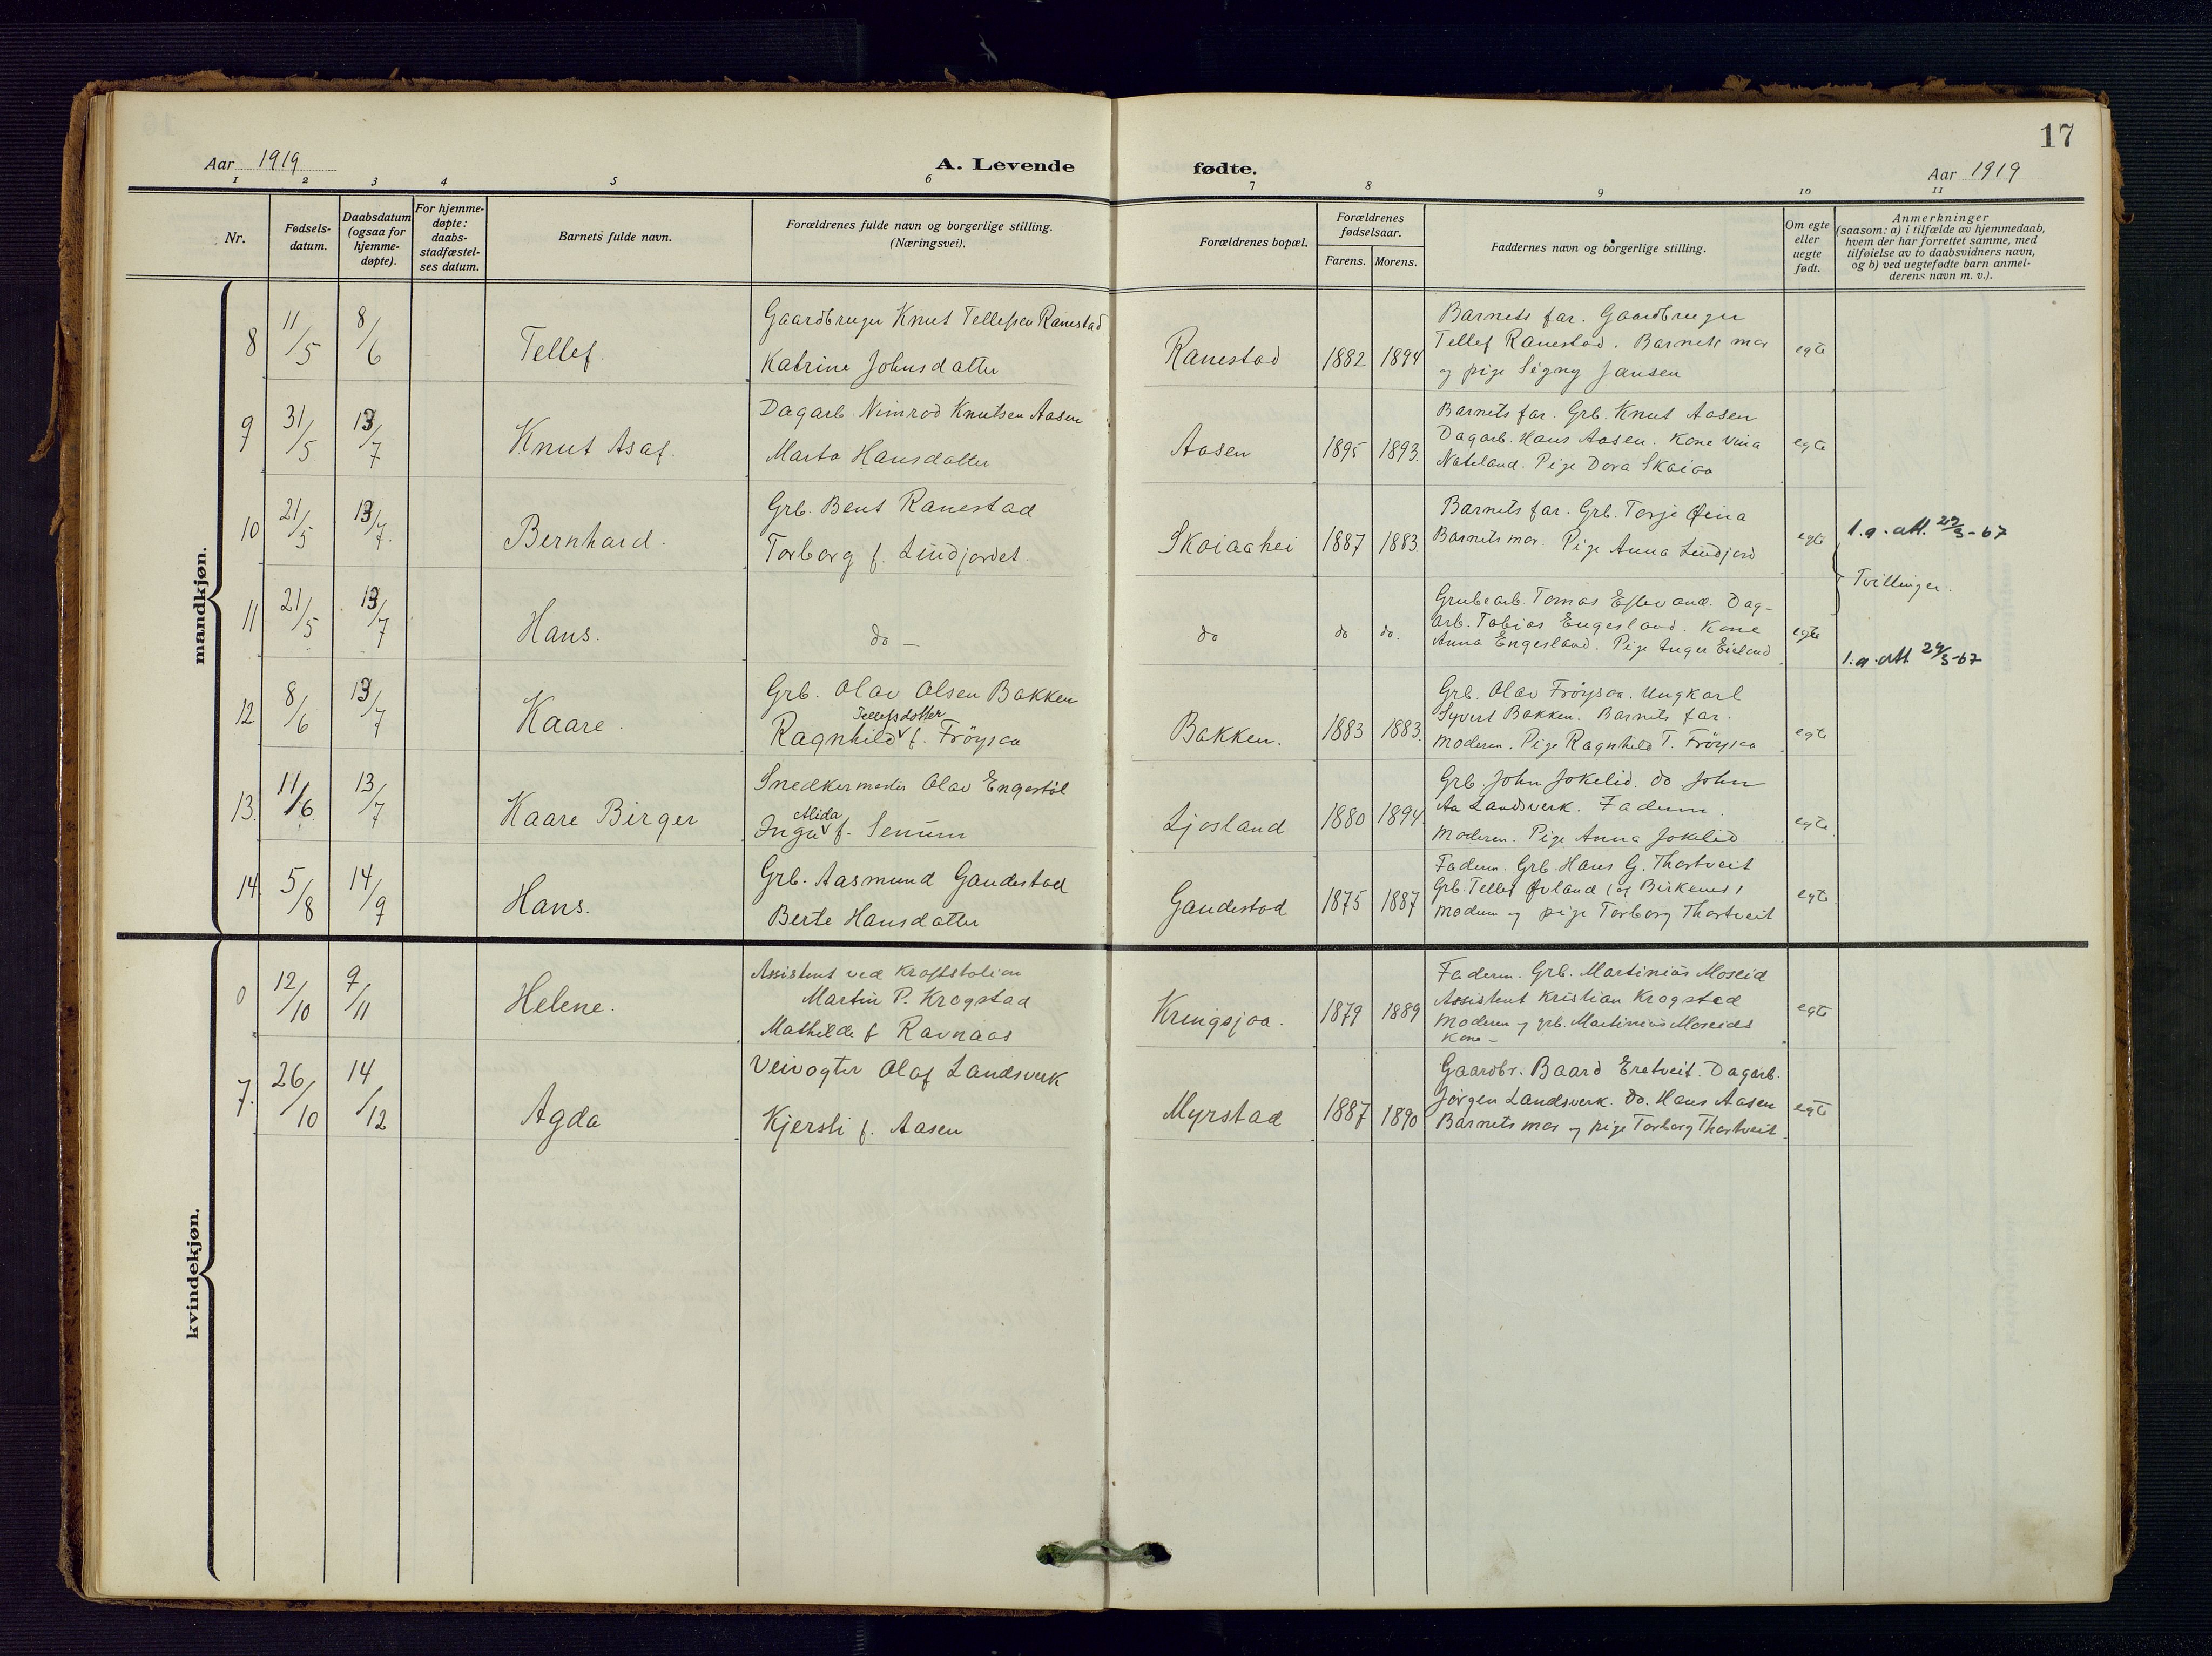 17
Aar 1919
A. Levende
fødte.
Aar 1919
1 2 3 4 5 6 7 8 9 10 11
Nr.
Fødsels-
datum.
Daabsdatum
(ogsaa for
hjemme-
døpte).
For hjemme-
døpte:
daabs-
stadfæstel-
ses datum.
Barnets fulde navn.
Forældrenes fulde navn og borgerlige stilling.
(Næringsvei).
Forældrenes bopæl.
Forældrenes
fødselsaar.
Farens. Morens.
Faddernes navn og borgerlige stilling.
Om egte
eller
uegte
født.
Anmerkninger
(saasom: a) i tilfælde av hjemmedaab,
hvem der har forrettet samme, med
tilføielse av to daabsvidners navn,
og b) ved uegtefødte barn anmel-
derens navn m. v.).
mandkjøn.
8 11/5 8/6 Tellef.
Gaardbruger Knut Tellefsen Ranestad
Katrine Johnsdatter
Ranestad 1882 1894
Barnets far. Gaardbruger
Tellef Ranestad. Barnets mor
og pige Signy Jansen
egte
9 31/5 13/7 Knut Asaf.
Dagarb. Nimrod Knutsen Aasen
Marta Hansdatter
Aasen 1895 1893.
Barnets far. Grb. Knut Aasen
Dagarb. Hans Aasen. Kone
Nateland. Pige Dora Skaiaa
egte
10 21/5 13/7. Bernhard.
Grb. Bent Ranestad
Torborg f. Lindjordet.
Skaiaahei 1887 1883.
Barnets far. Grb. Torje Øina
Barnets mor. Pige Anna Lindjord
egte
1.a.att. 29/3-67
Tvillinger.
11 21/5 13/7 Hans.
do —
do do do.
Grubearb. Tomas Eftevand. Dag-
arb. Tobias Engesland. Kone
Anna Engesland. Pige Inger Eieland
egte
1.a.att 29/3-67
12 8/6 13/7 Kaare.
Grb. Olav Olsen Bakken
Tellefsdotter
Ragnhild f. Fröysaa
Bakken. 1883 1883.
Grb. Olav Fröysaa. Ungkarl
Syvert Bakken. Barnets far.
Moderen. Pige Ragnhild T. Fröysaa
egte
13. 11/6 13/7 Kaare Birger
Snedkermester Olav Engestöl
Alida
Inga f. Senum
Ljosland 1880 1894.
Grb. John Jokelid. do John
Aa Landsverk. Faderen.
Moderen. Pige Anna Jokelid
egte.
14. 5/8 14/9 Hans.
Grb. Aasmund Gaudestad
Berte Hansdatter
Gaudestad 1875 1887
Faderen. Grb. Hans G. Thortveit
Grb Tellef Øvland (af Birkenes)
Moderen og pige Torborg Thortveit
egte
kvindekjøn.
12/10 9/11 Helene.
Assistent ved Kraftstation
Martin P. Krogstad
Mathilde f Ravnaas
Kringsjaa. 1879 1889
Faderen. Grb. Martinius Moseid
Assistent Kristian Krogstad
Moderen og grb. Martinius Moseids
Kone —
egte
7. 26/10 14/12 Agda
Veivogter Olaf Landsverk
Kjersti f. Aasen
Myrstad 1887 1890
Gaardbr. Baard Eretveit. Dagarb.
Jörgen Landsverk. do. Hans Aasen
Barnets mor og pige Torborg Thortveit
egte